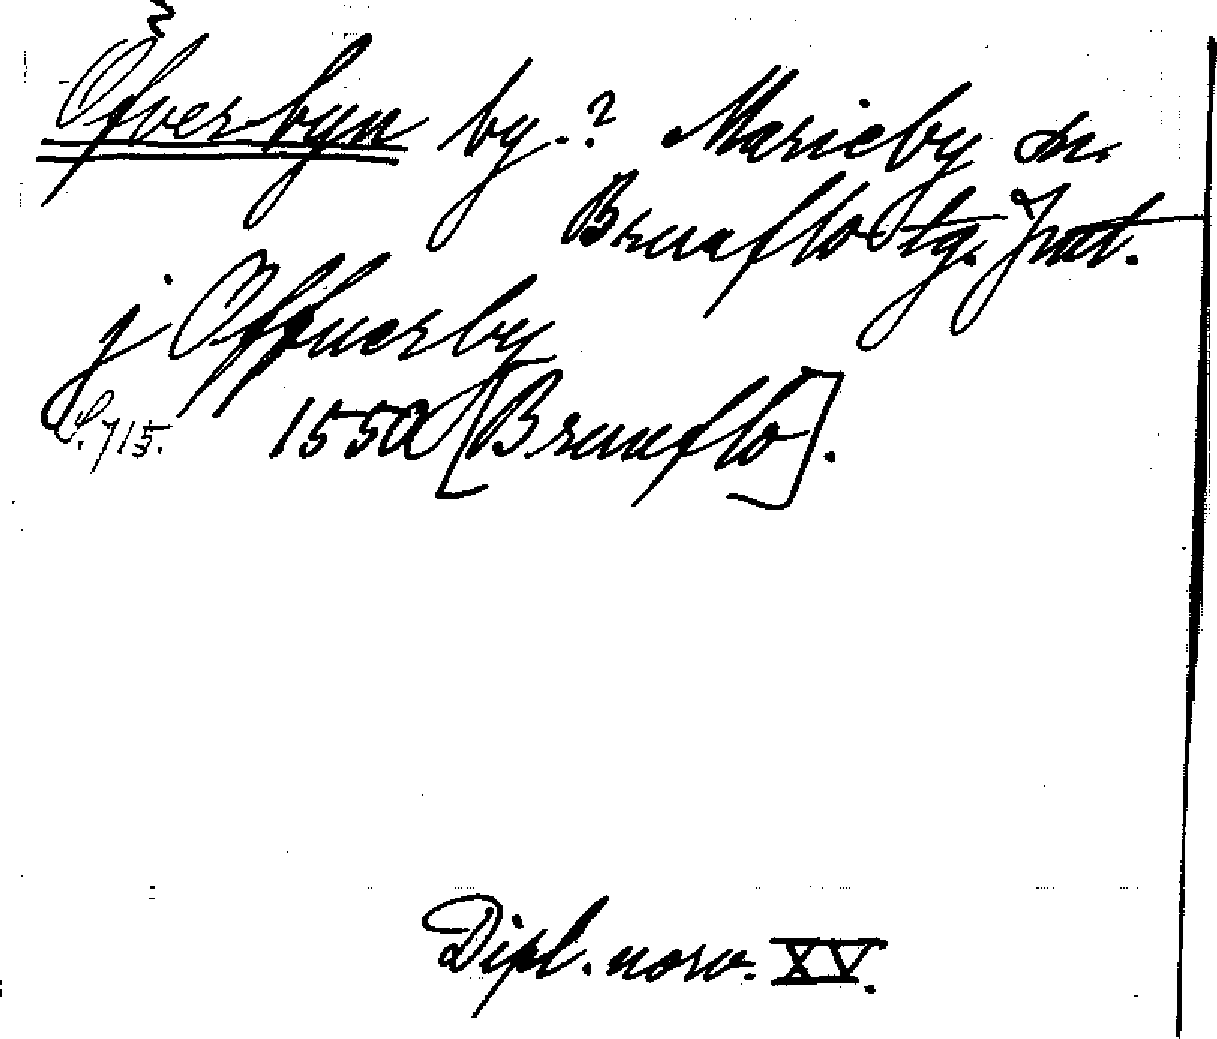 Öfverbyn by.? Marieby sn.
Brunflo tg. Jmt.
j Offuerby
S. 715. 1550 [Brunflo].
Dipl. norv. XV.